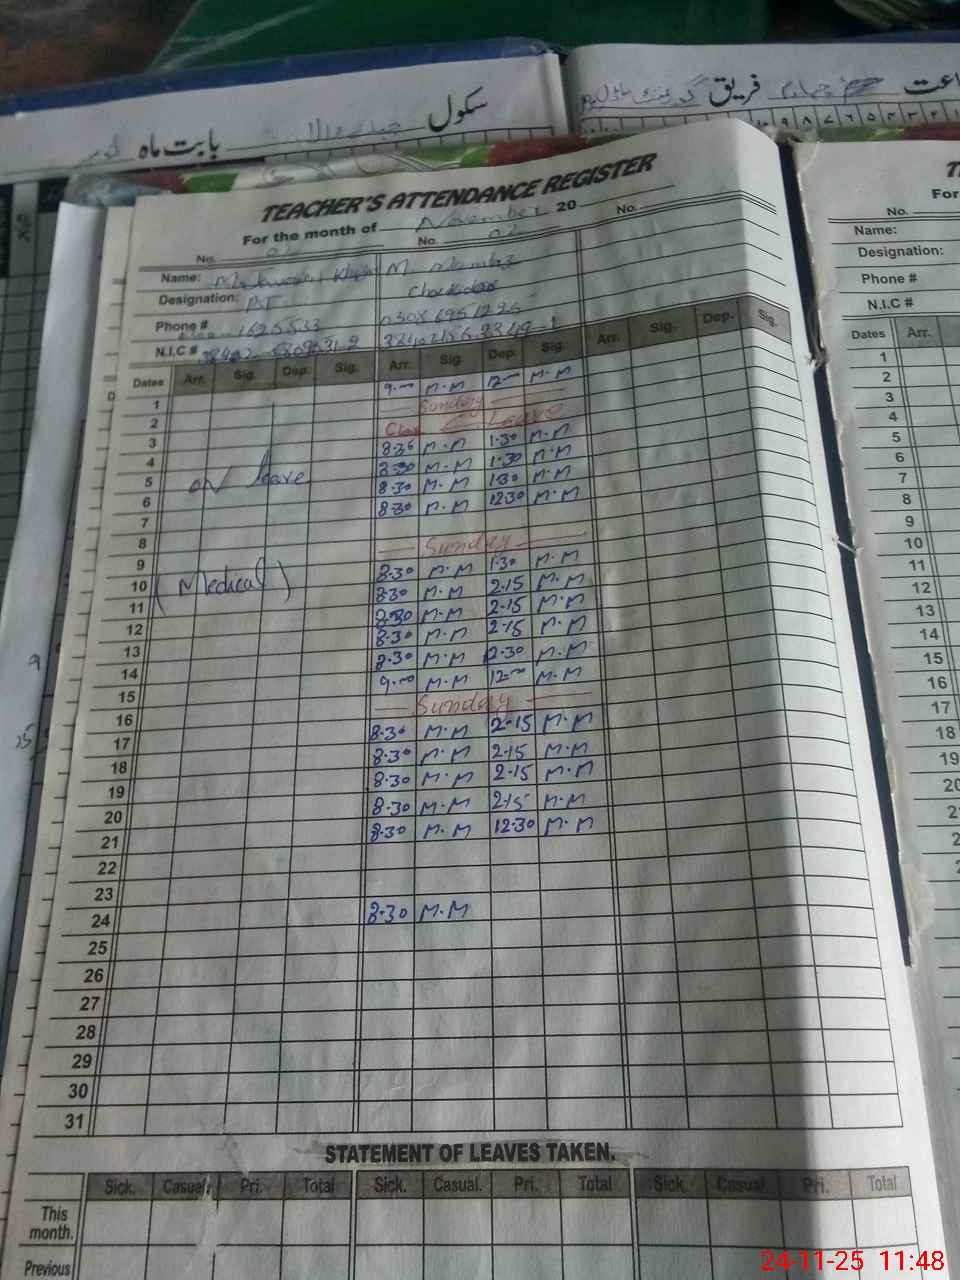 سکول
بابت ماہ
فریق
TEACHER'S ATTENDANCE REGISTER
For the month of November 20
No. 02 No. 02 No.
Name: M.
Designation: PST Chockidar
Phone # 1625533 0308 6951225
N.I.C #
Dates Arr. Sig. Dep. Sig. Arr. Sig. Dep. Sig. Arr. Sig. Dep. Sig.
1 9.00 M.M 12.00 M.M
2 Sunday
3 C. Leave
4 8.30 M.M 1.30 M.M
5 on leave 8.30 M.M 1.30 M.M
6 8.30 M.M 1.30 M.M
7 8.30 M.M 12.30 M.M
8
9 Sunday
10 (Medical) 8.30 M.M 1.30 M.M
11 8.30 M.M 2.15 M.M
12 8.30 M.M 2.15 M.M
13 8.30 M.M 2.15 M.M
14 8.30 M.M 12.30 M.M
15 9.00 M.M 12.00 M.M
16 Sunday
17 8.30 M.M 2.15 M.M
18 8.30 M.M 2.15 M.M
19 8.30 M.M 2.15 M.M
20 8.30 M.M 2.15 M.M
21 8.30 M.M 12.30 M.M
22
23
24 8.30 M.M
25
26
27
28
29
30
31
STATEMENT OF LEAVES TAKEN.
Sick. Casual. Pri. Total Sick. Casual. Pri. Total Sick. Casual Pri. Total
This
month.
Previous
For
No.
Name:
Designation:
Phone #
N.I.C #
Dates Arr.
1
2
3
4
5
6
7
8
9
10
11
12
13
14
15
16
17
18
19
20
24-11-25 11:48